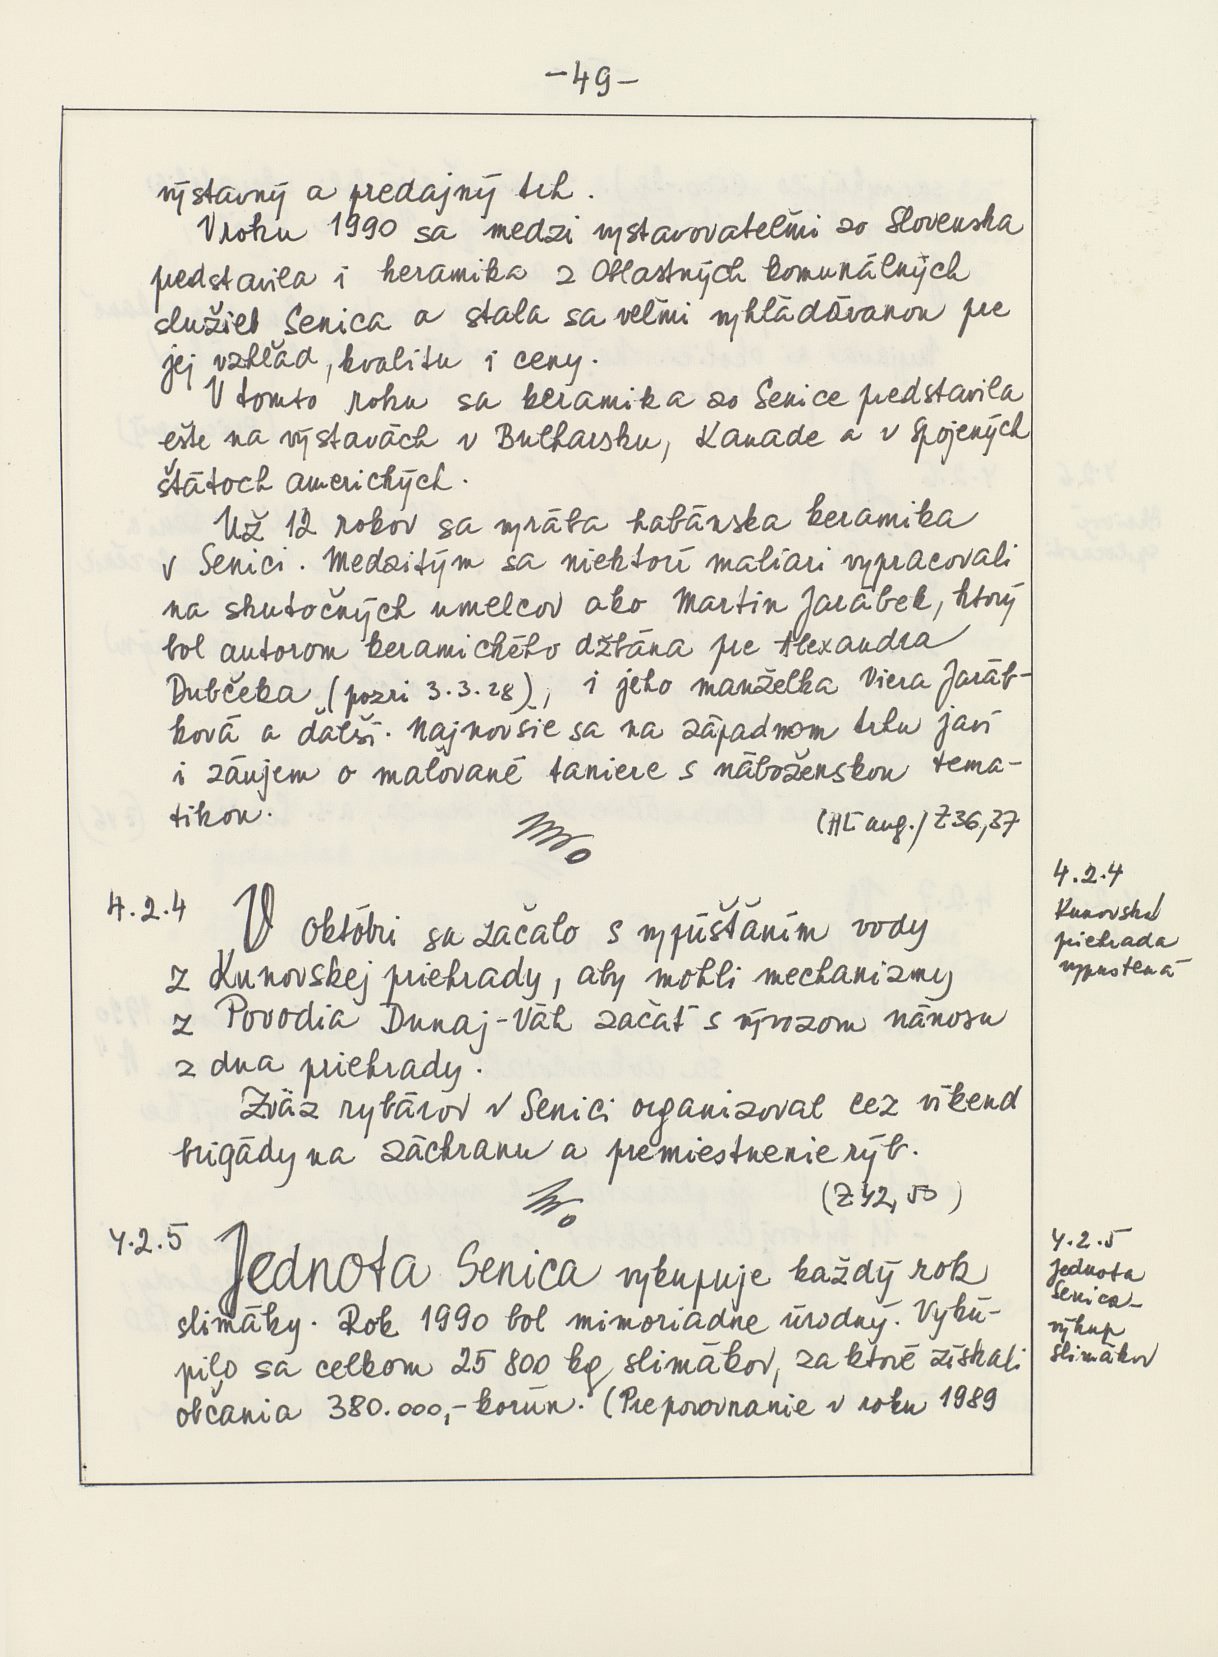 -49-
výstavný a predajný trh.
V roku 1990 sa medzi vystavovateľmi zo Slovenska
predstavila i keramika z Oblastných komunálnych
služieb Senica a stala sa veľmi vyhládávanou pre
jej vzhľad, kvalitu i ceny.
V tomto roku sa keramika zo Senice predstavila
ešte na výstavách v Bulharsku, Kanade a v Spojených
štátoch amerických.
Už 12 rokov sa vyrába habánska keramika
v Senici. Medzitým sa niektorí maliari vypracovali
na skutočných umelcov ako Martin Jarábek, ktorý
bol autorom keramického džbána pre Alexandra
Dubčeka (pozri 3.3.28), i jeho manželka Viera Jaráb-
ková a ďalší. Najnovšie sa na západnom trhu javí
i záujem o maľované taniere s náboženskou tema-
tikou.
(HĽ aug.) Z 36,37
4.2.4 V októbri sa začalo s vypúšťaním vody
z Kunovskej priehrady, aby mohli mechanizmy
z Povodia Dunaj-Váh začať s vývozom nánosu
z dna priehrady.
Zväz rybárov v Senici organizoval cez víkend
brigády na záchranu a premiestnenie rýb.
(Z 42, 50)
4.2.4
Kunovská
priehrada
vypustená
4.2.5 Jednota Senica vykupuje každý rok
slimáky. Rok 1990 bol mimoriadne úrodný. Vykú-
pilo sa celkom 25 800 kg slimákov, za ktoré získali
občania 380.000,- korún. (Pre porovnanie v roku 1989
4.2.5
Jednota
Senica-
výkup
slimákov